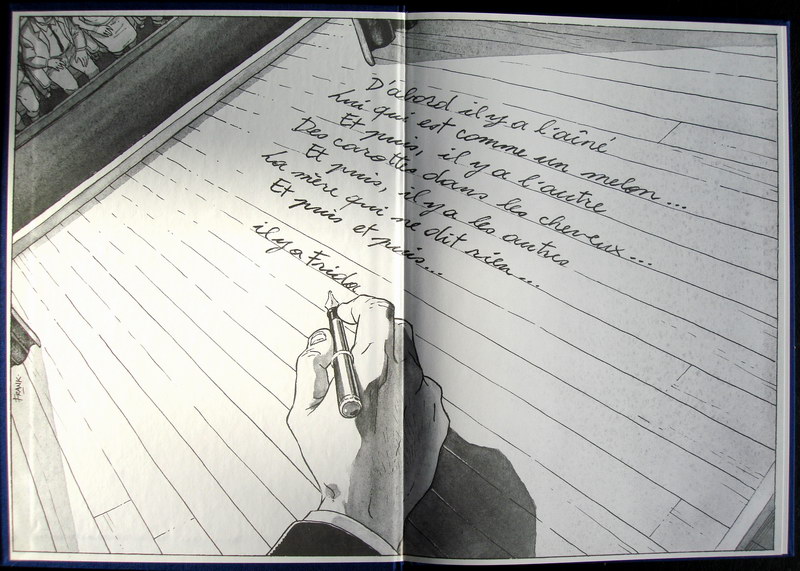 D'abord il y a l'aîné
Lui qui est comme un melon...
Et puis, il y a l'autre
Des carottes dans les cheveux...
Et puis, il y a les autres
La mère qui ne dit rien...
Et puis et puis...
il y a Frida
FRANK